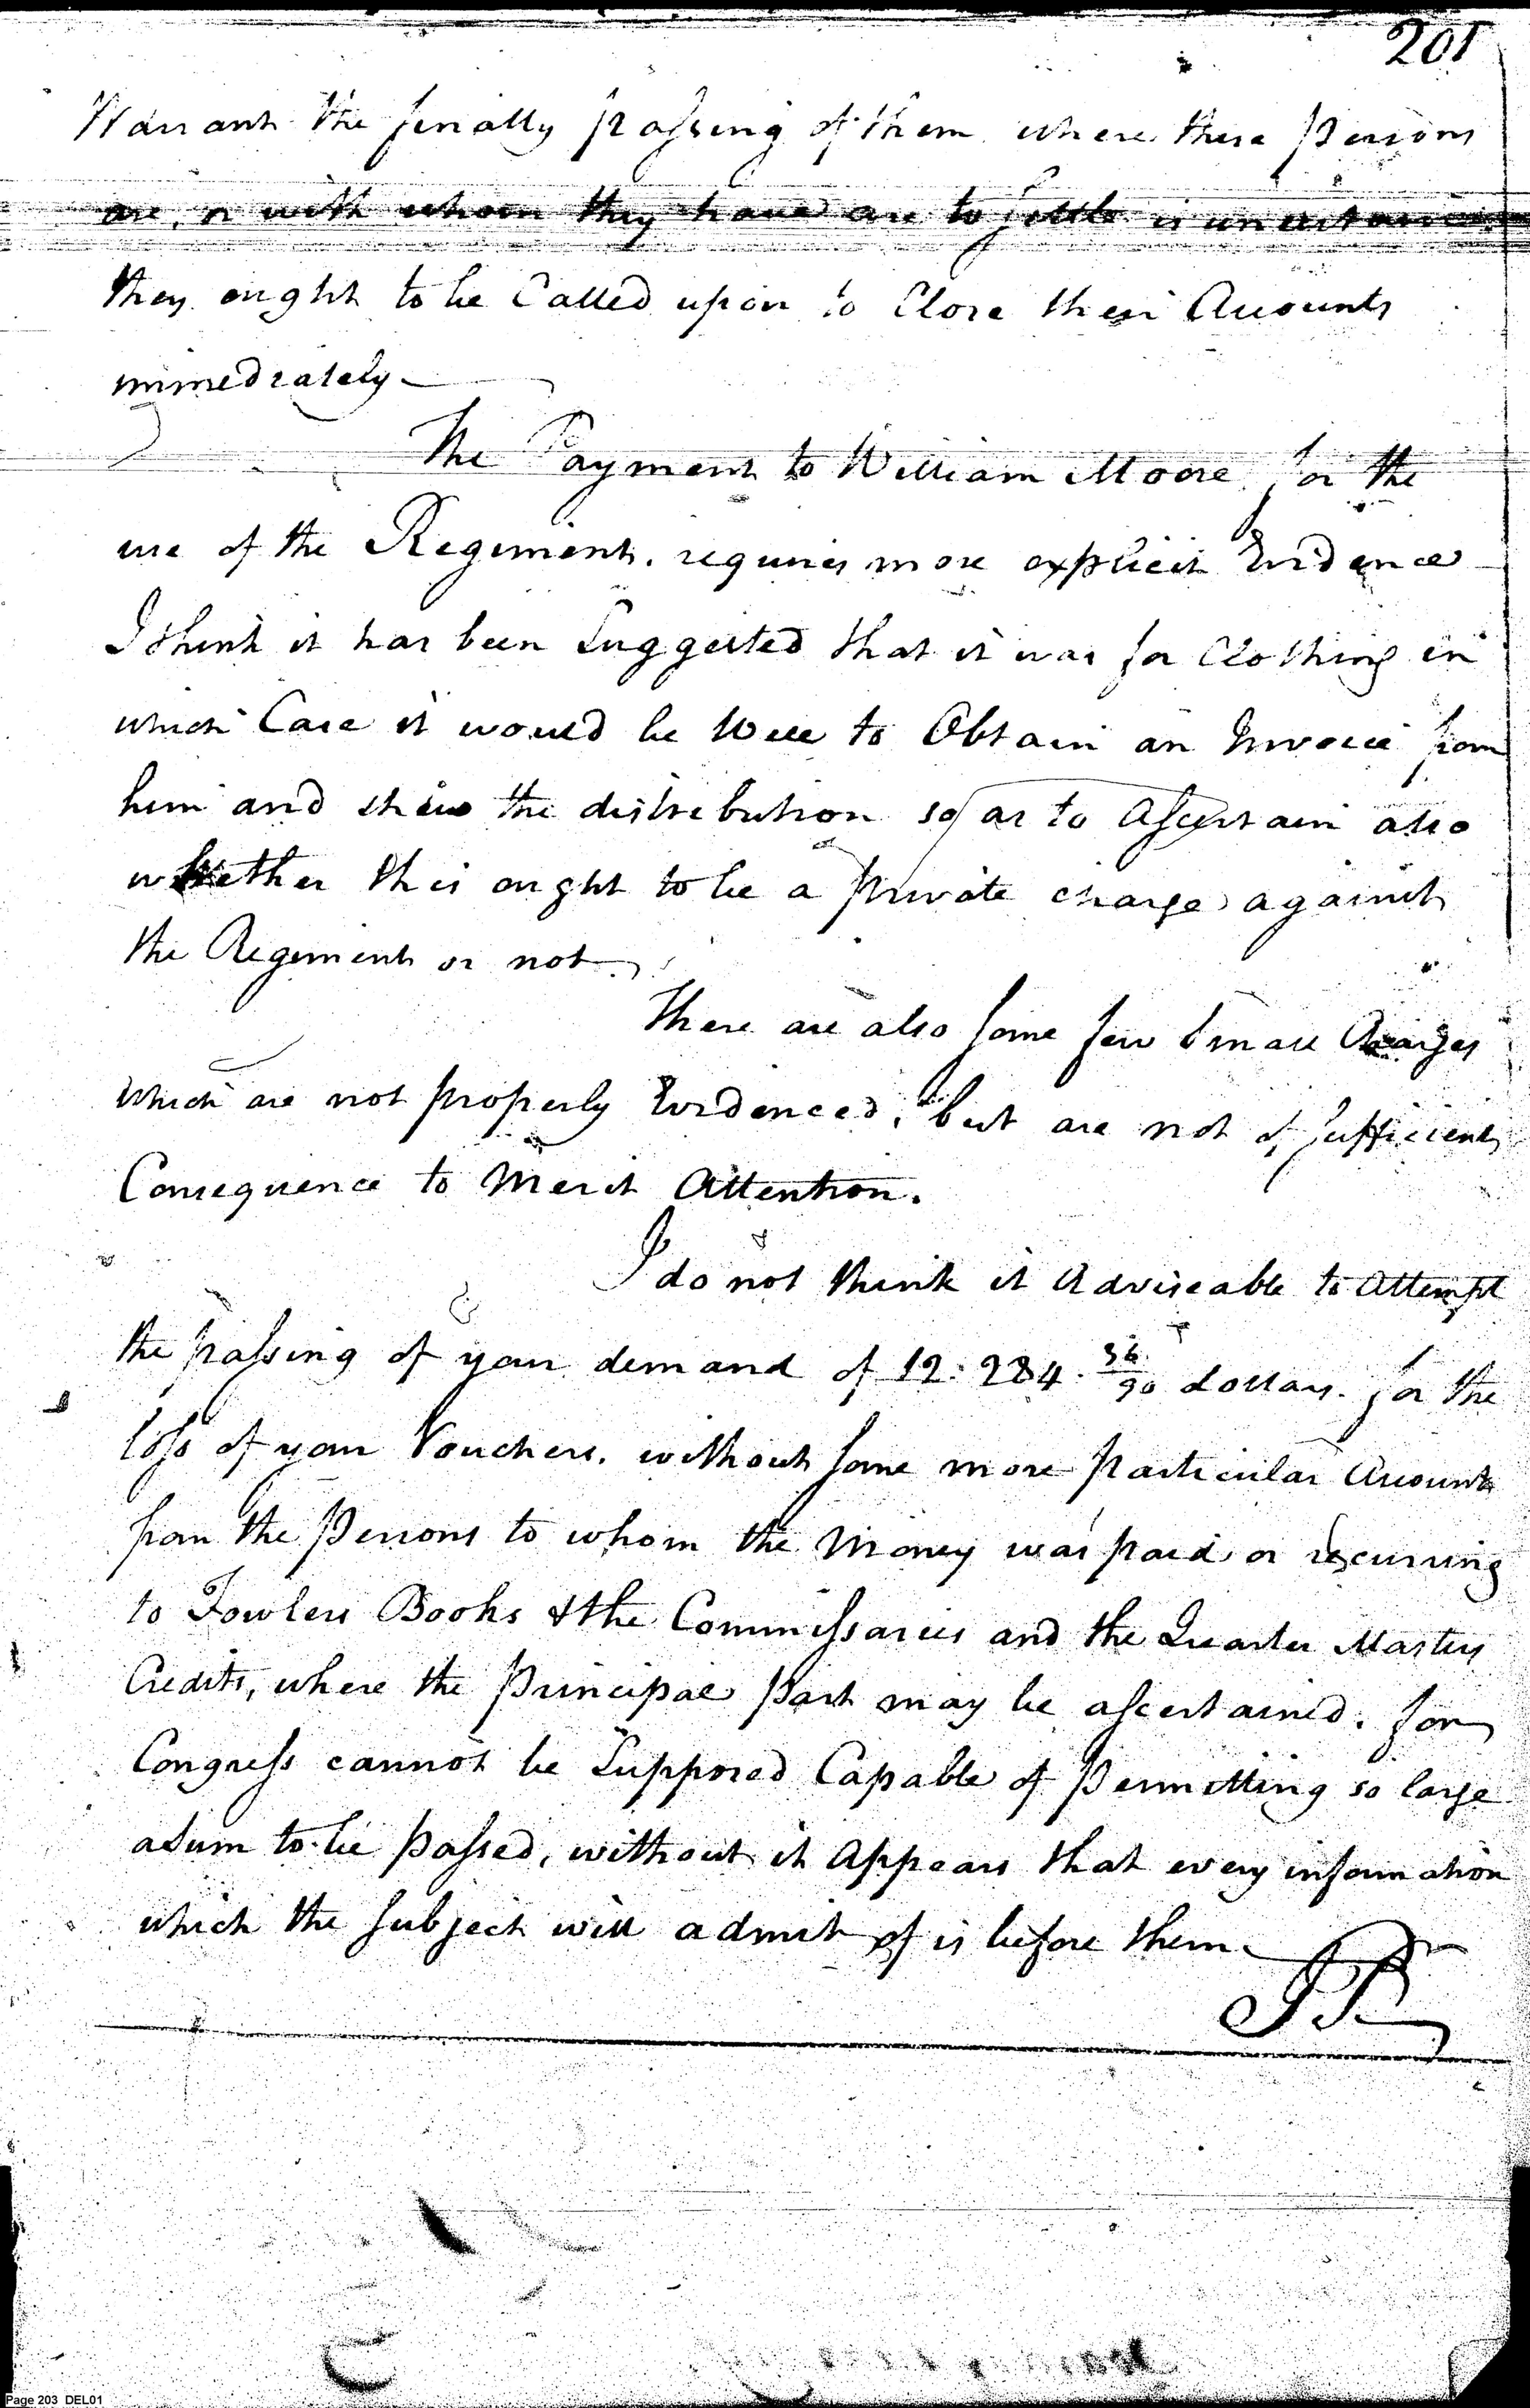 201
Warrant the finally passing of them where these Persons
are, or with whom they have are to settle is uncertain
they ought to be Called upon to Close their Accounts
immediately
The Payment to William Moore for the
use of the Regiment. requires more explicit Evidence
I think it has been Suggested that it was for Clothing in
which Case it would be Well to Obtain an Invoice from
him and shew the distribution so as to Ascertain also
whether this ought to be a private charge against
the Regiment or not
There are also some few Small Charges
which are not properly Evidenced, but are not of sufficient
Consequence to Merit Attention.
I do not think it Adviseable to Attempt
the passing of your demand of 12.284. 36/90 dollars. for the
loss of your Vouchers. without some more particular Account
from the Persons to whom the Money was paid or recurring
to Fowlers Books & the Commissaries and the Quarter Masters
Credits, where the Principal part may be ascertained. for
Congress cannot be Supposed Capable of Permitting so large
a Sum to be passed, without it Appears that every information
which the subject will admit of is before them
Page 203 DEL01